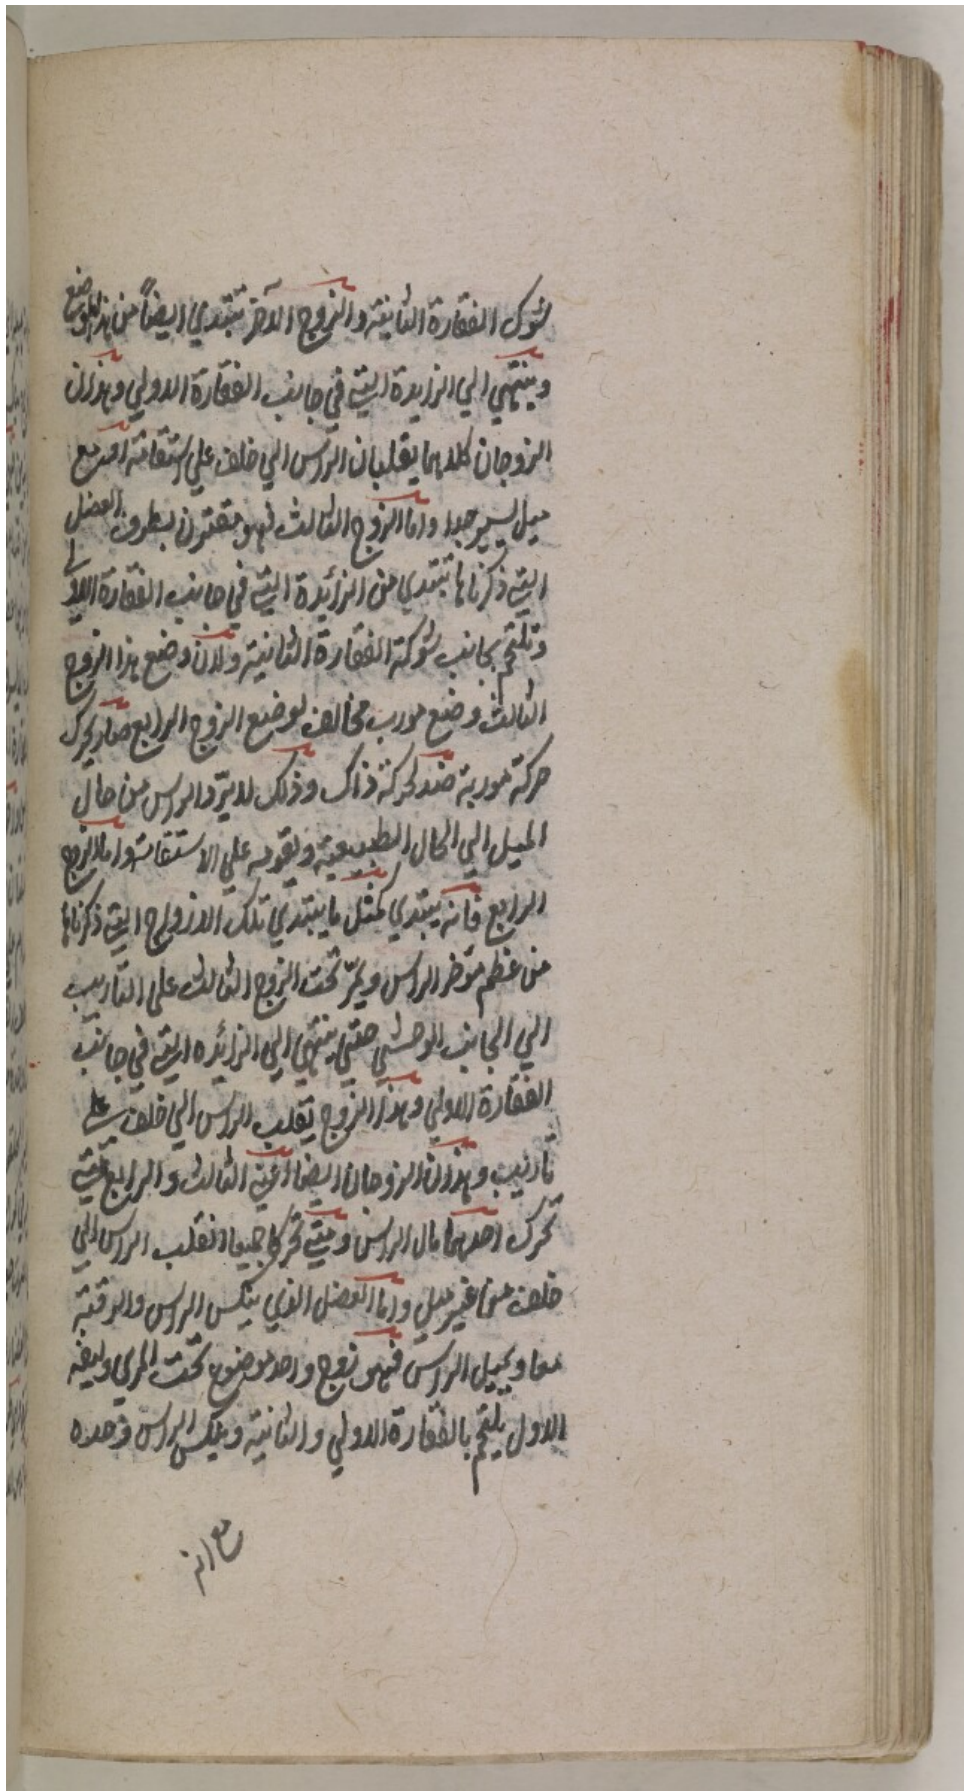 شوك الفقارة الثانية والزوج الآخر تبتدي ايضاً من هذا الموضع
وينتهي الي الزايدة التي في جانب الفقارة الاولي وهذان
الزوجان كلاهما يقلبان الراس الي خلف علي استقامته او مع
ميل يسير جدا واما الزوج الثالث فهو مقترن بطرف العضل
التي ذكرناها تبتدي من الزائيدة التي في جانب الفقارة الاولي
وتلتحم بجانب شوكة الفقارة الثانية ولان وضع هذا الزوج
الثالث وضع مورب مخالف لوضع الزوج الرابع صار يحرك
حركة موربة ضد لحركة ذاك وذلك لانه يرد الراس من حال
الميل الي الحال الطبيعية ويقومه علي الاستقامة واما الزوج
الرابع فانه يبتدي كمثل ما يبتدي تلك الازواج التي ذكرناها
من عظم مؤخر الراس ويمرّ تحت الزوج الثالث علي التاريب
الي الجانب الوحشي حتي ينتهي الي الزائيده التي في جانب
الفقارة الاولي وهذا الزوج يقلب الراس الي خلف علي
تاريب وهذان الزوجان ايضا اعني الثالث والرابع متي
تحرك احدهما مال الراس ومتي تحركا جميعا انقلب الراس الي
خلف من غير ميل واما العضل الذي ينكس الراس والرقبة
معا ويميل الراس فهو زوج واحد موضوع تحت المري وليفه
الاول يلتحم بالفقارة الاولي والثانية وينكس الراس وحده
مع انه